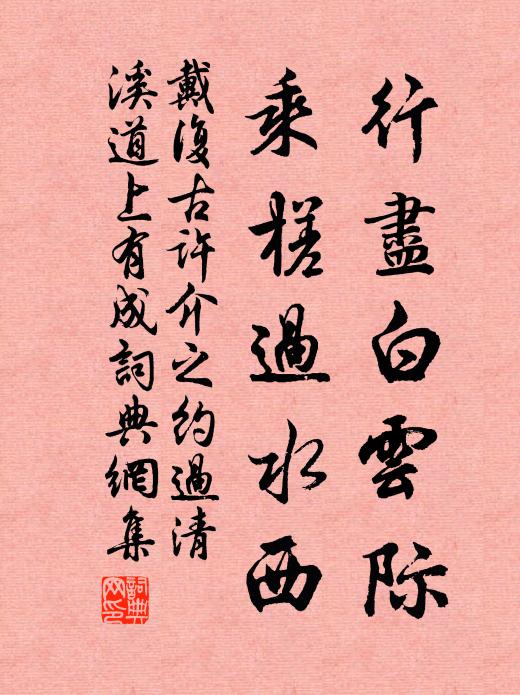 行盡白雲際
乘槎過水西
戴復古許介之約過清
溪道上有成詞典網集
詞典網印